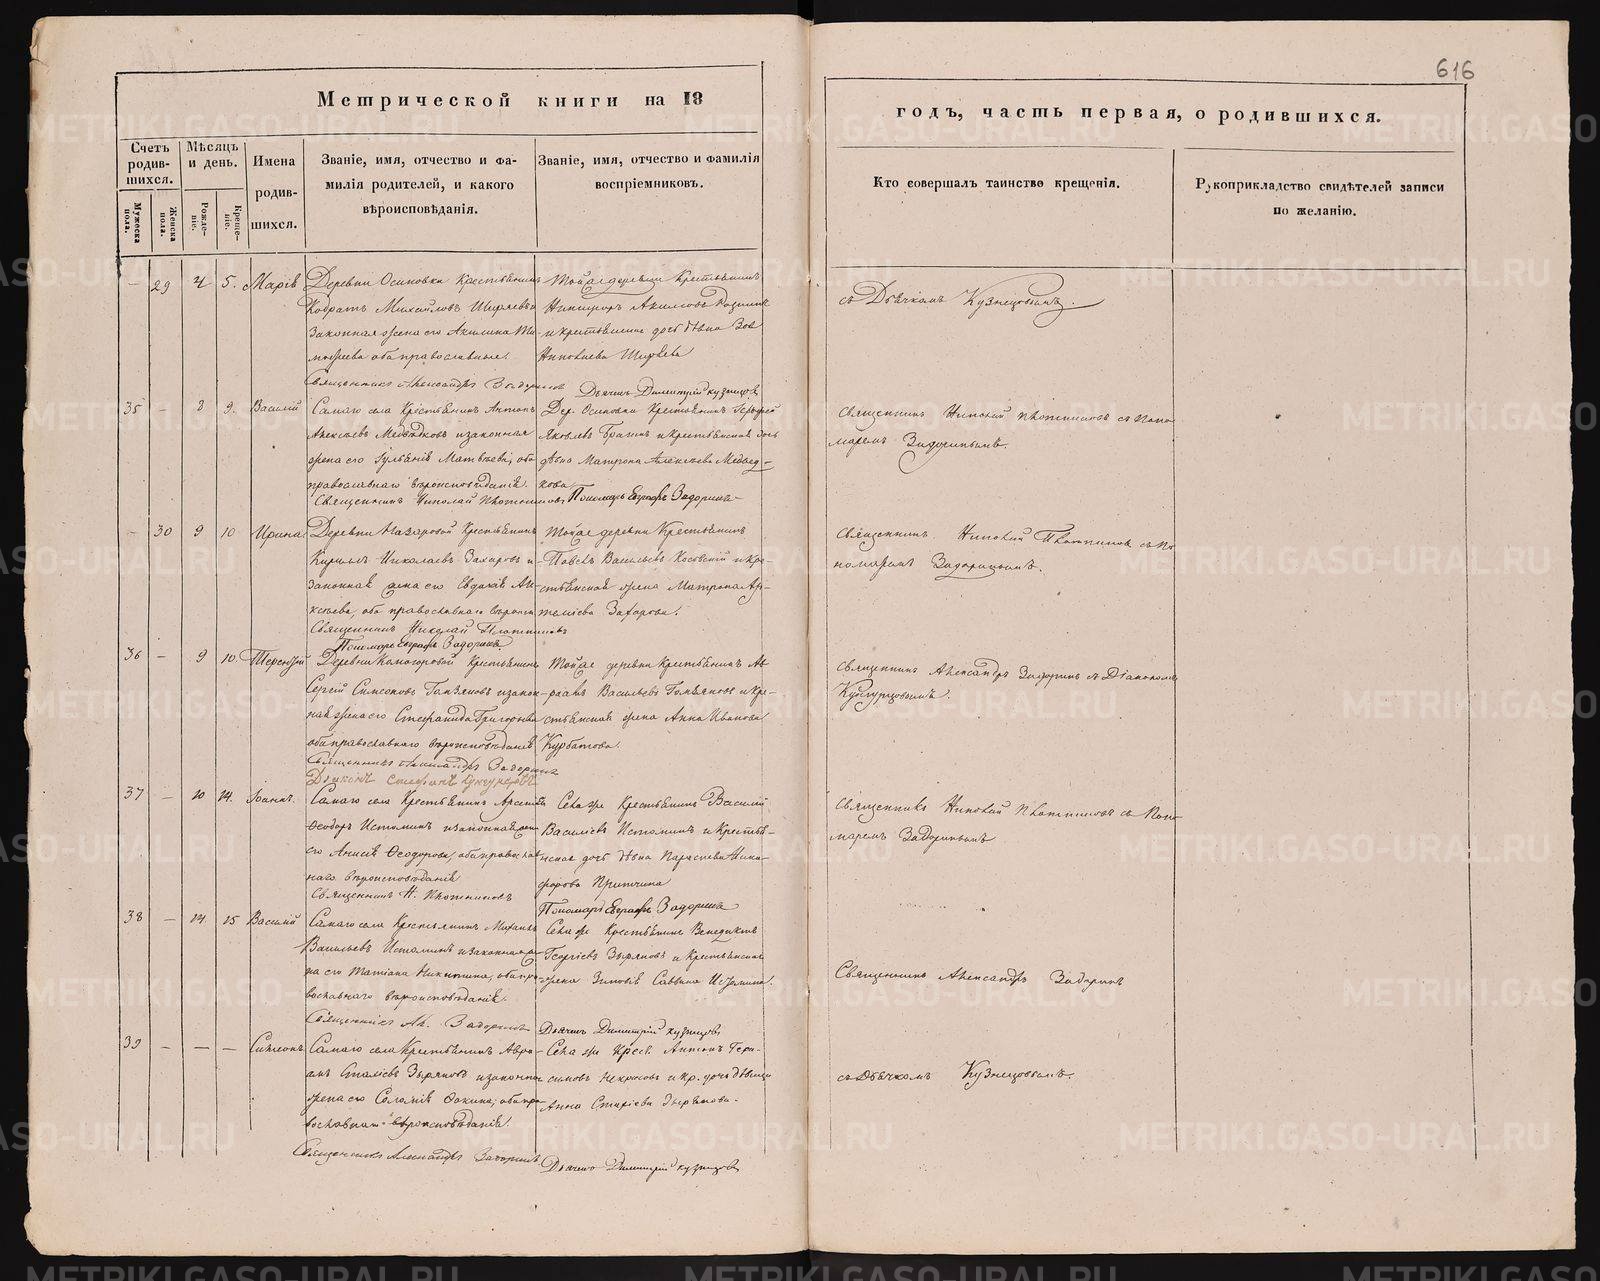 616
Метрической книги на 18
годъ, часть первая, о родившихся.
Счетъ родив-шихся.
Мѣсяцъ и день.
Имена родив-шихся.
Званіе, имя, отчество и фа-
милія родителей, и какого
вѣроисповѣданія.
Званіе, имя, отчество и фамилія
воспріемниковъ.
Кто совершалъ таинство крещенія.
Рукоприкладство свидѣтелей записи
по желанію.
Мужеска пола.
Женска пола.
Рожде-ніе.
Креще-ніе.
29 4 5. Марія
Деревни Осиновки Крестьянинъ
Кодратъ Михайловъ Ширяевъ и
Законная жена его Акилина Ти-
мофеева оба православные.
Священникъ Александръ Задоринъ
Тойже деревни Крестьянинъ
Никифоръ
и крестьянская дочь дѣвка
Ширяева
Дьячекъ Димитрій Кузнецовъ
съ Дьячкомъ Кузнецовымъ.
35 - 8 9. Василій
Самаго села Крестьянинъ Антонъ
Алексѣевъ Медвѣдковъ и законная
жена его Іульянія Матвѣева, оба
православнаго вѣроисповѣданія.
Священникъ Николай Плотниковъ
Дер. Осиновки Крестьянинъ
Яковлевъ Брагинъ и Крестьянская дочь
дѣвка Матрона Алексѣева Медвѣд-
кова
Пономарь Евграфъ Задоринъ
Священникъ Николай Плотниковъ съ Поно-
маремъ Задоринымъ.
- 30 9 10 Ирина
Деревни Назаровой Крестьянинъ
Кириллъ Николаевъ Захаровъ и
законная жена его Евдокія Ал-
ксѣева, оба православнаго
Священникъ Николай Плотниковъ
Пономарь Евграфъ Задоринъ
Тойже деревни Крестьянинъ
Павелъ Васильевъ Косовскій и кре-
стьянская жена Матрона Ар-
темьева Захарова.
Священникъ Николай Плотниковъ съ По-
номаремъ Задоринымъ.
36 - 9 10. Терентій
Деревни Крестьянинъ
Сергій Симеоновъ и закон-
ная жена его Стефанида Григорьева
оба православнаго вѣроисповѣданія
Священникъ Александръ Задоринъ
Дьяконъ Стефанъ Кунгурцовъ
Тойже деревни Крестьянинъ Ав-
раамъ Васильевъ и кре-
стьянская жена Анна Иванова
Курбатова.
Священникъ Александръ Задоринъ съ Діакономъ
Кунгурцовымъ.
37 - 10 14. Іоаннъ.
Самаго села Крестьянинъ Арсеній
Ѳеодоръ Истоминъ и законная жена
его Анисія Ѳеодорова, оба православ-
наго вѣроисповѣданія
Священникъ Н. Плотниковъ
Села же Крестьянинъ Василій
Василіевъ Истоминъ и Крестья-
нская дочь дѣвка Параскева Ники-
форова
Пономарь Евграфъ Задоринъ
Священникъ Николай Плотниковъ съ Поно-
маремъ Задоринымъ
38 - 14. 15 Василій
Самаго села Крестьянинъ Михаилъ
Васильевъ Истоминъ и законная же-
на его Татіана Никитина, оба пра-
вославнаго вѣроисповѣданія.
Священникъ Ал. Задоринъ
Села же Крестьянинъ Венедиктъ
Георгіевъ Зыряновъ и Крестьянская
жена Зиновія Саввина Истомина.
Дьячекъ Димитрій Кузнецовъ
Священникъ Александръ Задоринъ
39 - - - Симеонъ
Самаго села Крестьянинъ Авра-
амъ Зыряновъ и законная
жена его Соломія Ѳокина, оба пра-
вославнаго вѣроисповѣданія.
Священникъ Александръ Задоринъ
Села же Крест. Антонъ Гера-
симовъ Некрасовъ и Кр. дочь дѣвица
Анна Зырянова.
Дьячекъ Димитрій Кузнецовъ
съ Дьячкомъ Кузнецовымъ.
METRIKI.GASO-URAL.RU